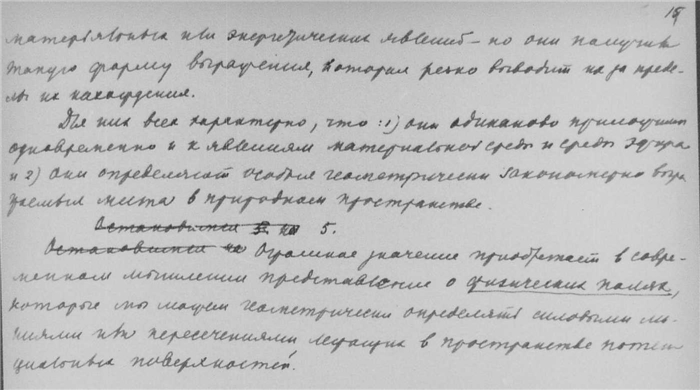 15
материальных или энергетических явлений – но они получили
такую форму выражения, которая резко выводит их за преде-
лы их нахождения.
Для них всех характерно, что: 1) они одинаково приложимы
одновременно и к явлениям материальной среды и среды эфира
и 2) они определяют особые геометрически закономерно выра
жаемые места в природном пространстве.
Остановимся на 5.
Остановимся на Огромное значение приобретает в совре-
менном мышлении представление о физических полях,
которые мы можем геометрически определять силовыми ли-
ниями или пересечениями лежащих в пространстве потен
циальных поверхностей.